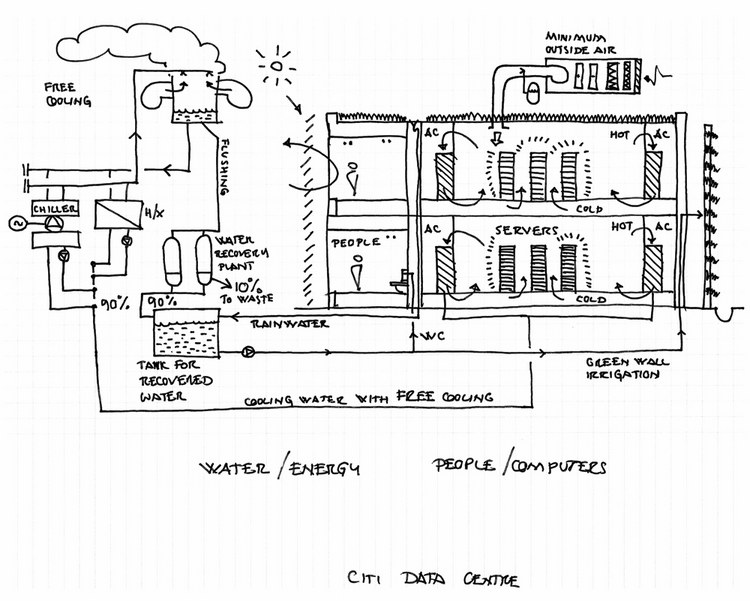 MINIMUM
OUTSIDE AIR
FREE
COOLING
FLUSHING
AC
HOT
AC
CHILLER
H/X
COLD
WATER
RECOVERY
PLANT
PEOPLE
AC
SERVERS
HOT
AC
10%
TO WASTE
90%
90%
COLD
RAINWATER
WC
TANK FOR
RECOVERED
WATER
GREEN WALL
IRRIGATION
COOLING WATER WITH FREE COOLING
WATER/ENERGY
PEOPLE/COMPUTERS
CITI DATA CENTRE